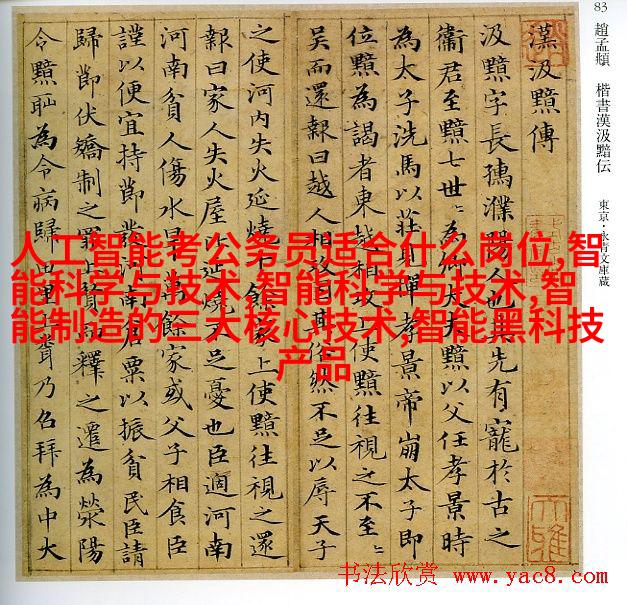 83
趙孟頫 楷書漢汲黯伝 東京・永青文庫蔵
漢汲黯傳
汲黯字長孺濮陽人也其先有寵於古之
衞君至黯七世〻為卿大夫黯以父任孝景時
為太子洗馬以莊見憚孝景帝崩太子即
位黯為謁者東越相攻上使黯往視之不至〻
吴而還報曰越人相攻固其俗然不足以辱天子
之使河内失火延燒千餘家上使黯往視之還
報曰家人失火屋比延燒不足憂也臣適河南
河南貧人傷水旱萬餘家或父子相食臣
謹以便宜持節發河南倉粟以振貧民臣請
歸節伏矯制之罪上賢而釋之遷為滎陽
令黯恥為令病歸田里上聞乃召拜為中大
人工智能考公务员适合什么岗位,智
能科学与技术,智能科学与技术,智
能制造的三大核心技术,智能黑科技
产品
书法欣赏 www.yac8.com